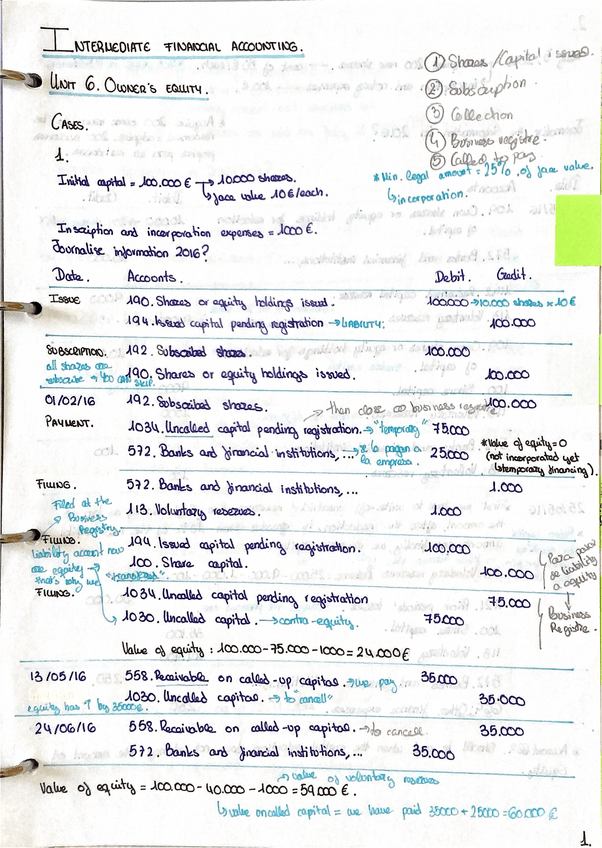 INTERMEDIATE FINANCIAL ACCOUNTING.
UNIT 6. OWNER'S EQUITY.
① Shares/Capital issued.
② Subscription.
③ Collection
④ Business registre.
⑤ Called to pay
* Min. legal amount = 25% of face value.
↳ incorporation.
CASES.
1.
Initial capital = 100.000 € → 10.000 shares.
↳ face value 10€/each.
Inscription and incorporation expenses = 1000 €.
Journalise information 2016?
Date. Accounts. Debit. Credit.
ISSUE 190. Shares or equity holdings issued. 100.000 → 10.000 shares × 10€
194. Issued capital pending registration → LIABILITY. 100.000
SUBSCRIPTION. 192. Subscribed shares. 100.000
all shares are
subscribe → you can skip.
190. Shares or equity holdings issued. 100.000
01/02/16 192. Subscribed shares. 100.000
→ then close → business registre
PAYMENT. 1034. Uncalled capital pending registration. → "temporary" 75.000
572. Banks and financial institutions, ... → te lo pagan a la empresa. 25000
* Value of equity = 0
(not incorporated yet
↳ temporary financing).
FILLING. 572. Banks and financial institutions, ... 1.000
113. Voluntary reserves. 1.000
Filled at the
Business
Registry.
FILLING. 194. Issued capital pending registration. 100.000
100. Share capital. 100.000
liability account now
are equity →
that's why we "transfered"
Para pasar
de liability
a equity
↓
Business
Registre.
FILLING. 1034. Uncalled capital pending registration 75.000
1030. Uncalled capital. → contra-equity. 75.000
Value of equity : 100.000 - 75.000 - 1000 = 24.000€
13/05/16 558. Receivable on called-up capital. → we pay. 35.000
1030. Uncalled capital. → to "cancell" 35.000
equity has ↑ by 35000€
24/06/16 558. Receivable on called-up capital. → to cancel. 35.000
572. Banks and financial institutions, ... 35.000
→ value of voluntary reserves
Value of equity = 100.000 - 40.000 - 1000 = 59.000 €.
↳ value oncalled capital = we have paid 35000 + 25000 = 60.000 €
1.